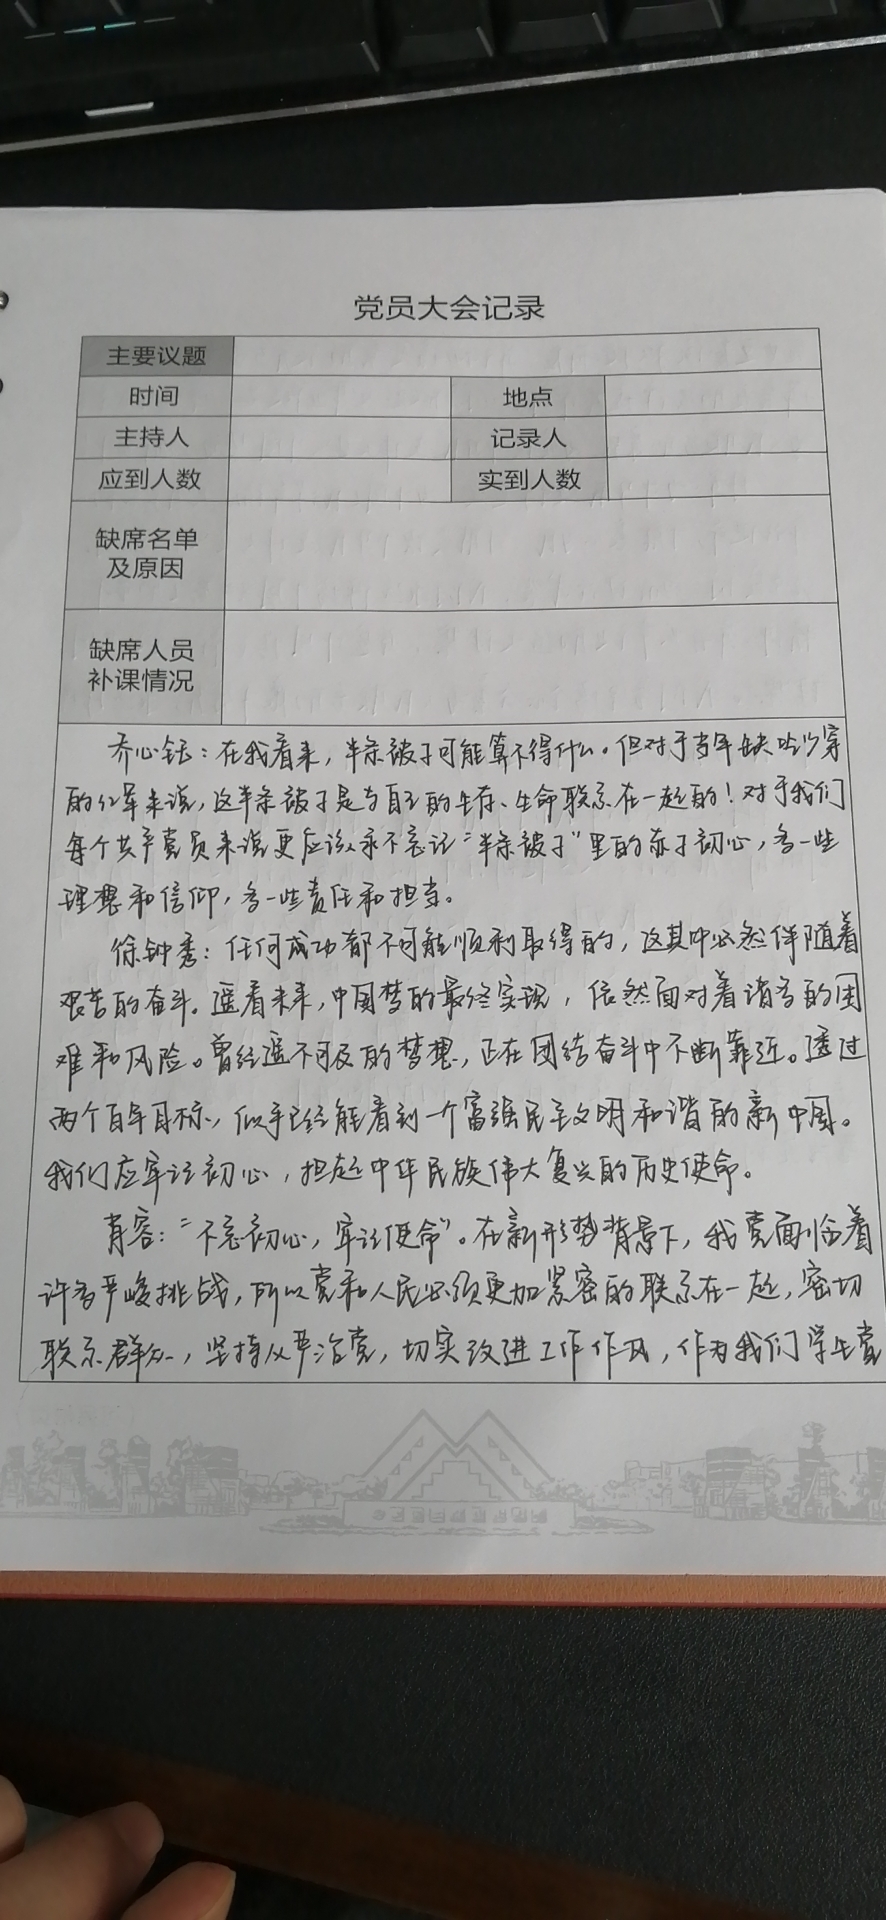 党员大会记录
主要议题
时间 地点
主持人 记录人
应到人数 实到人数
缺席名单
及原因
缺席人员
补课情况
乔心钰：在我看来，半条被子可能算不得什么。但对于当年缺吃少穿
的红军来说，这半条被子是与自己的生存、生命联系在一起的！对于我们
每个共产党员来说更应该永不忘记“半条被子”里的赤子初心，多一些
理想和信仰，多一些责任和担当。
徐钟秀：任何成功都不可能顺利取得的，这其中必然伴随着
艰苦的奋斗。遥看未来，中国梦的最终实现，依然面对着诸多的困
难和风险。曾经遥不可及的梦想，正在团结奋斗中不断靠近。透过
两个百年目标，似乎已经能看到一个富强民主文明和谐的新中国。
我们应牢记初心，担起中华民族伟大复兴的历史使命。
肖容：“不忘初心，牢记使命”。在新形势背景下，我党面临着
许多严峻挑战，所以党和人民必须更加紧密的联系在一起，密切
联系群众，坚持从严治党，切实改进工作作风，作为我们学生党